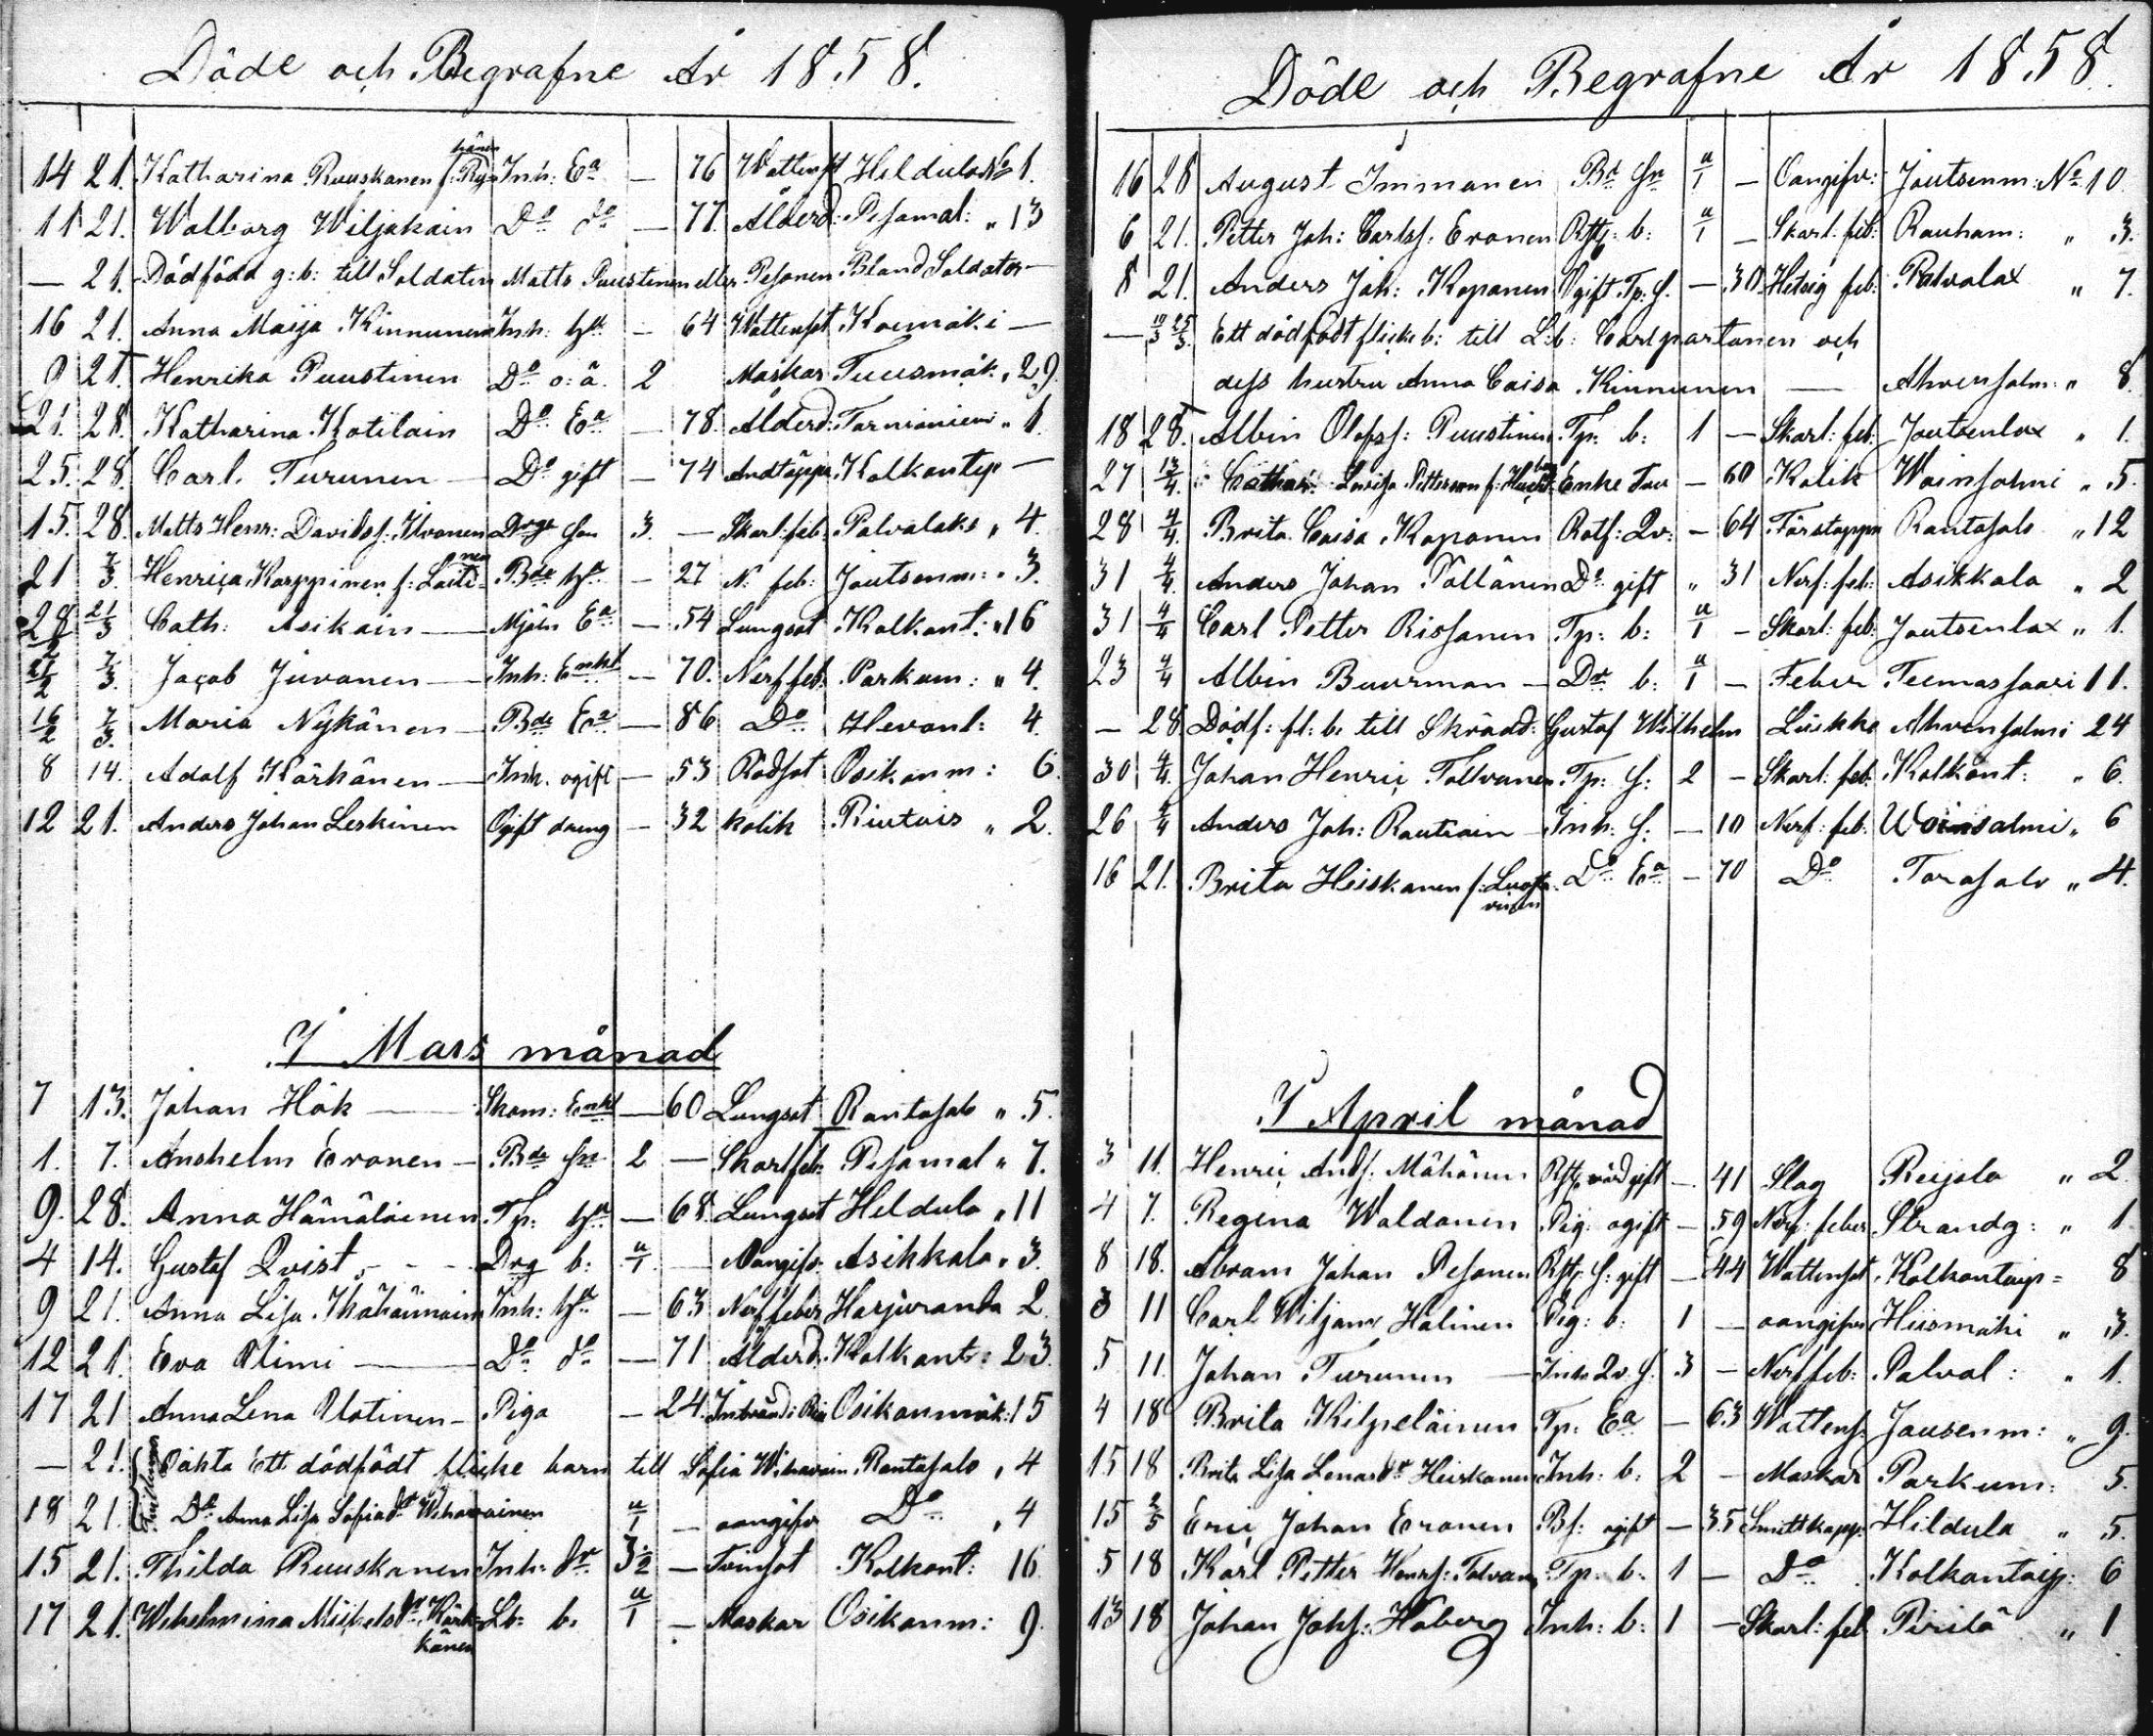 Döde och Begrafne År 1858.
14 21. Katharina Ruuskanen f: Inh: Ea — 76 Wattensot Heldula No 1.
11 21. Walborg Wiljakain Do do — 77. Ålderd: Pesamal: " 13
— 21. Dödfödd g: b: till Soldaten Matts Puustinen eller Pesonen Bland Soldater —
16 21. Anna Maija Kinnunen Inh: hu — 64 Wattensot Koemäki —
9 21. Henrika Puustinen Do o: ä. 2 Maskar Tuusmäk. " 29.
21. 28. Katharina Kotilain Do Ea — 78. Ålderd: Tornioniem " 1.
25. 28. Carl Turunen — Do gift — 74 Andtäppa Kolkontaip —
15. 28. Matts Henr: Davidsf. Ikonen Drgs son 3. — Skarl: feb. Palvalaks " 4.
21 7/3. Henrica Karppinen f: Laitinen Bde hu — 27 N. feb: Joutsenm: " 3.
28 21/3 Cath: Asikain — Mjöln Ea — 54 Lungsot Kolkont: " 16
27/2 7/3. Jacob Juvonen — Inh: Enkl — 70. Nerf feb. Parkum: " 4.
16/2 7/3. Maria Nykänen — Bde Ea — 86 Do Hevonl: 4.
8 14. Adolf Kärkänen — Inh. ogift — 53 Rödsot Osikonm: 6.
12 21. Anders Johan Leskinen Ogift dreng — 32 kolik Riutuis " 2.
I Mars månad
7 13. Johan Hök — Skom: Enkl — 60 Lungsot Rantasalo " 5.
1. 7. Anshelm Eronen — Bde Sn 2 — Skarl feb. Pesamal " 7.
9. 28. Anna Hämäläinen Tp: hu — 68. Lungsot Heldula " 11
4 14. Gustaf Qvist, - - - Drg b: u/1. — Oangifv. Asikkala " 3.
9 21. Anna Lisa Inh: hu — 63 Nerf feber Harjuranda 2.
12 21. Eva Olimi — Do do — 71 Ålderd: Kolkont: 23.
17 21 Anna Lena Utotinen — Piga — 24. Osikonmäk: 15
— 21. Oäkta Ett dödfödt flicke barn till Sofia Wihavain. Rantasalo " 4
18 21. Do Anna Lisa Sofiadr Wihavainen u/1 — oangifv Do " 4
15 21. Thilda Ruuskanen Inh: dr 3 1/2 — Tvinsot Kolkont: 16.
17 21. Wilhelmina Mickelsdr Kärkkänen Lb: b. u/1 — Maskar Osikonm: 9.
Döde och Begrafne År 1858.
16 28 August Immonen Bd Sn u/1 — Oangifv: Joutsenm: No 10.
6 21. Petter Joh: Carlsf. Eronen b: u/1 — Skarl: feb: Rauham: " 3.
8 21. Anders Joh: Koponen Ogift Tp: S. — 30. Hetsig feb: Palvalax " 7.
— 19/3 25/3. Ett dödfödt flicke b: till L:b: Carl partanen och
dess hustru Anna Caisa Kinnunen — Ahvensalm: " 8.
18 28. Albin Olofsf: Puustinen Tp. b: 1 — Skarl: feb: Joutsenlax " 1.
27 13/4. Lovisa Petterson f: Enke — 60 Kolik Woinsalmi " 5.
28 4/4. Brita Caisa Koponen Rotf: Qv: — 64 Förstoppn Rantasalo " 12
31 4/4. Anders Johan Pöllänen Do gift " 31 Nerf: feb: Asikkala " 2
31 4/4 Carl Petter Rissanen Tp: b: u/1 — Skarl: feb: Joutsenlax " 1.
23 4/4 Albin Buurman — Dr b: u/1 — Feber Teemassaari 11.
— 28. Dödf: fl: b. till Skrädd: Gustaf Wilhelm Luikko Ahvensalmi 24
30 4/4. Johan Henric Tolvanen Tp: S: 2 — Skarl: feb. Kolkont: " 6.
26 4/4 Anders Joh: Rautiain — Inh: S: — 10 Nerf: feb: Woinsalmi " 6
16 21. Brita Heiskanen f: Do Ea — 70 Do Torasalo " 4.
I April månad
3 11. Henric Andf: Mähönen gift — 41 Slag Reijola " 2.
4 7. Regina Waldonen Pig: ogift — 59 Nerf: feber Strandg: " 1
8 18. Abram Johan Pesonen S: gift — 44 Wattensot. Kolkontaip= 8
3 11 Carl Wiljam Halinen Pig: b: 1 — oangifven Hiismäki " 3.
5 11. Johan Turunen — Inh: Qv. S. 3 — Nerf feb: Palval: " 1.
4 18 Brita Kilpeläinen Tp: Ea — 63 Wattens. Jousenm: " 9.
15 18 Brita Lisa Lenardr Heiskanen Inh: b: 2 — Maskar Parkum: 5.
15 2/5 Eric Johan Eronen Bs: ogift — 35 Smittkopp. Hildula " 5.
5 18 Karl Petter Henrs: Tolvan, Tp. b. 1 — Do Kolkontaip: 6
13 18 Johan Johs: Hoberg Inh: b: 1 — Skarl: feb Pirilä " 1